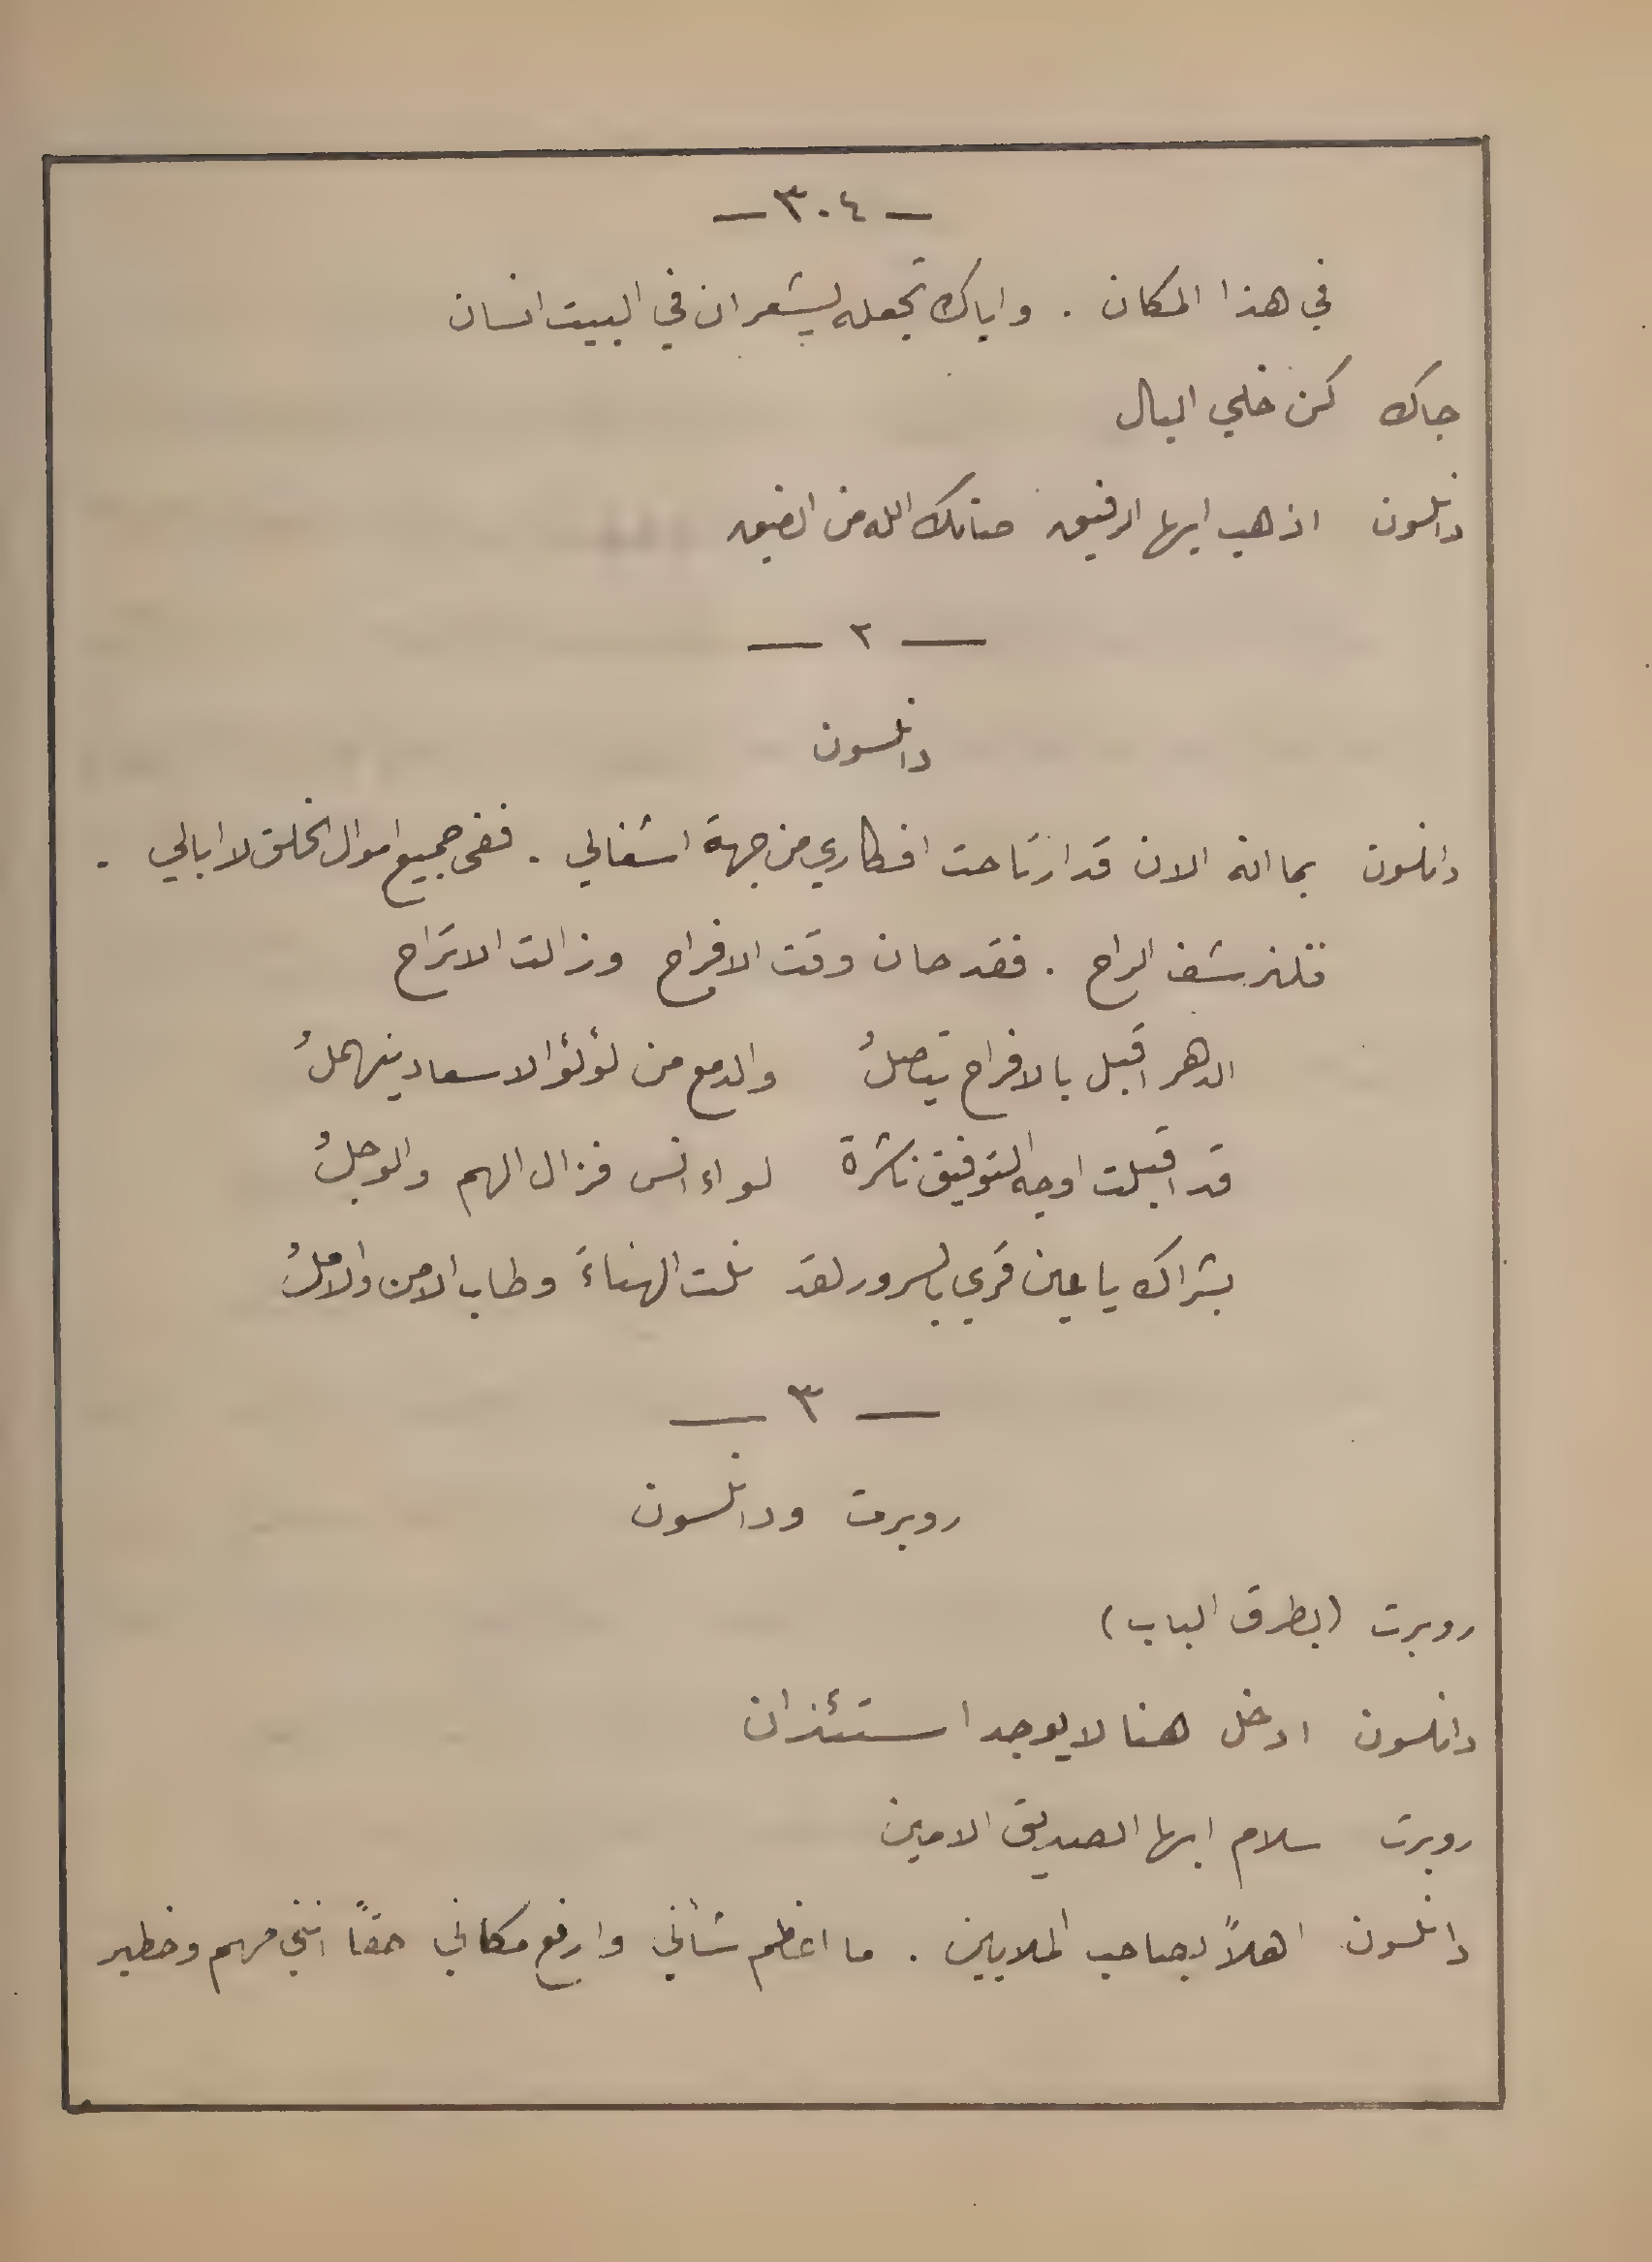 — ٣٠٤ —
في هذا المكان . واياك تجعله يشعر ان في البيت انسان
جاك كن خلي البال
دانلسون اذهب ايها الرفيق صانك الله من الضيق
— ٢ —
دانلسون
دانلسون بما انه الان قد ارتاحت افكاري من جهة اشغالي . ففي جميع اموال الخلق لا ابالي .
فلنرشف الراح . فقد حان وقت الافراح وزالت الاتراح
الدهر اقبل بالافراح يتصلُ والدمع من لؤلؤ الاسعاد ينهملُ
قد اقبلت اوجه التوفيق ناشرة لواء انس فزال الهم والوجلُ
بشراك يا عين قري بالسرور لقد نلت الهناءَ وطاب الامن والاملُ
— ٣ —
روبرت ودانلسون
روبرت (يطرق الباب)
دانلسون ادخل هنا لا يوجد استئذان
روبرت سلام ايها الصديق الامين
دانلسون اهلاً بصاحب الملايين . ما اعظم شأني وارفع مكاني حقاً انني مهم وخطير